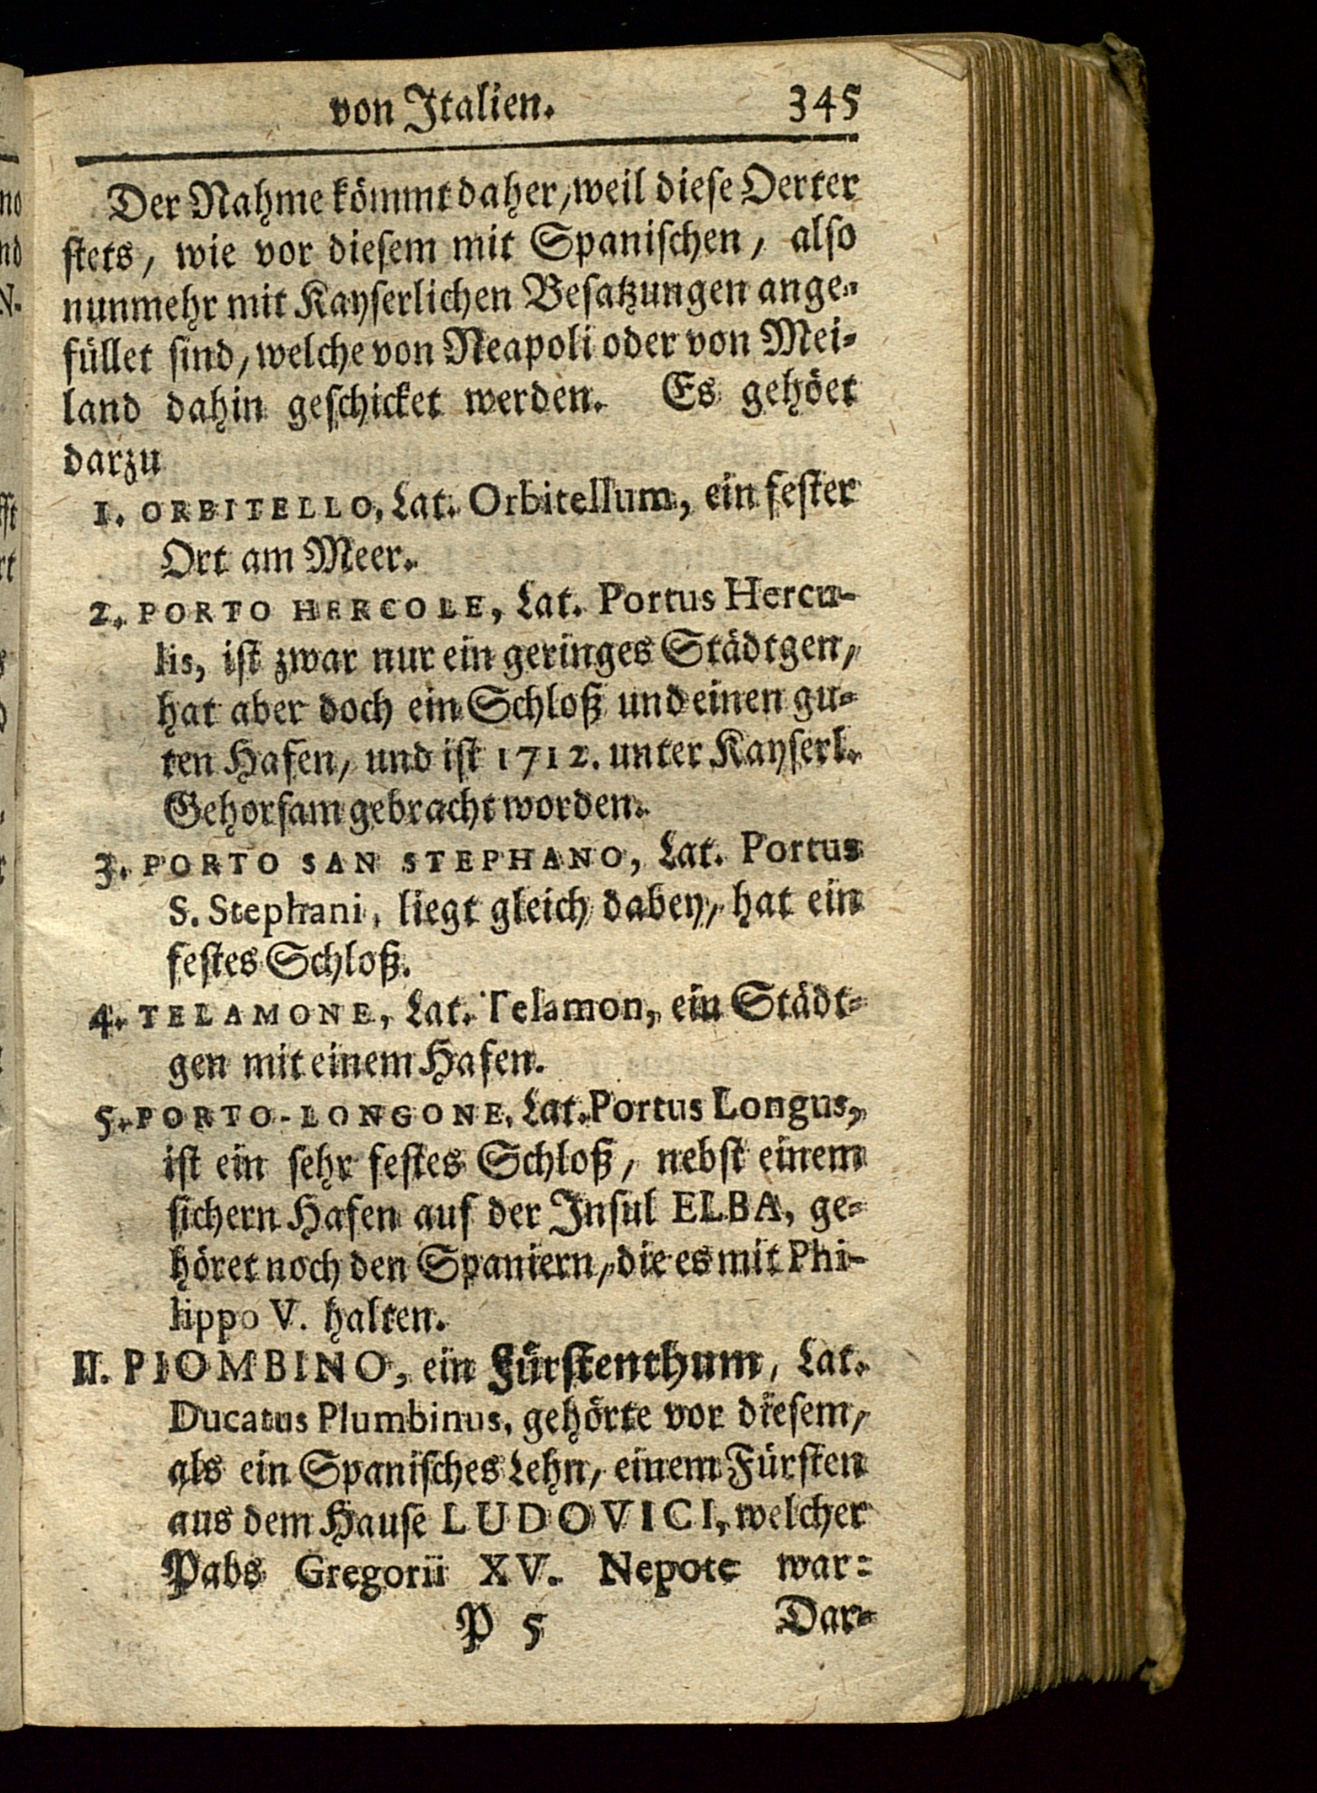 von Italien. 345
Der Nahme kömmt daher, weil diese Oerter
stets, wie vor diesem mit Spanischen, also
nunmehr mit Kayserlichen Besatzungen ange-
füllet sind, welche von Neapoli oder von Mei-
land dahin geschicket werden. Es gehöet
darzu
1. ORBITELLO, Lat. Orbitellum, ein fester
Ort am Meer.
2. PORTO HERCOLE, Lat. Portus Hercu-
lis, ist zwar nur ein geringes Städtgen,
hat aber doch ein Schloß und einen gu-
ten Hafen, und ist 1712. unter Kayserl.
Gehorsam gebracht worden.
3. PORTO SAN STEPHANO, Lat. Portus
S. Stephani, liegt gleich dabey, hat ein
festes Schloß.
4. TELAMONE, Lat. Telamon, ein Städt-
gen mit einem Hafen.
5. PORTO-LONGONE, Lat. Portus Longus,
ist ein sehr festes Schloß, nebst einem
sichern Hafen auf der Insul ELBA, ge-
höret noch den Spaniern, die es mit Phi-
lippo V. halten.
II. PIOMBINO, ein Fürstenthum, Lat.
Ducatus Plumbinus, gehörte vor diesem,
als ein Spanisches Lehn, einem Fürsten
aus dem Hause LUDOVICI, welcher
Pabs Gregorii XV. Nepote war:
P 5 Dar-